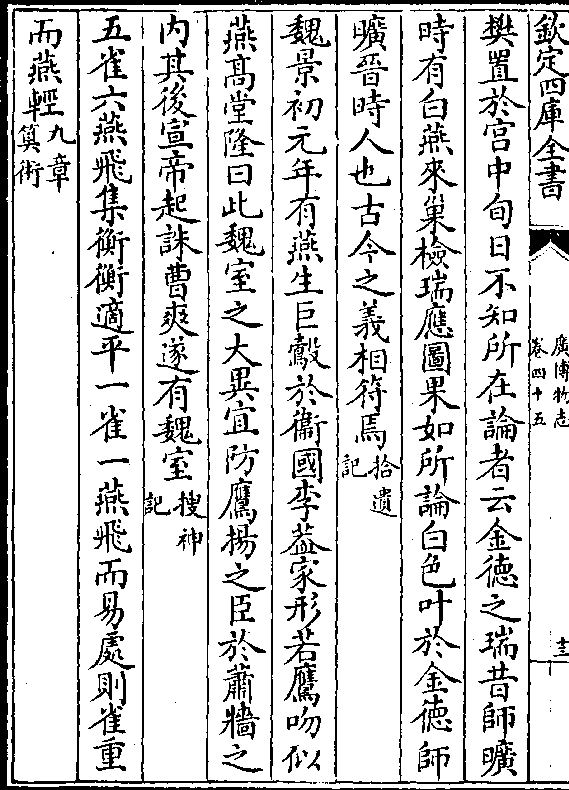 欽定四庫全書
廣博物志
卷四十五
十三
樊置於宫中旬日不知所在論者云金徳之瑞昔師曠
時有白燕來巢檢瑞應圖果如所論白色叶於金徳師
曠晉時人也古今之義相符焉拾遺記
魏景初元年有燕生巨鷇於衞國李葢家形若鷹吻似
燕髙堂隆曰此魏室之大異宜防鷹揚之臣於蕭牆之
内其後宣帝起誅曹爽遂有魏室搜神記
五雀六燕飛集衡衡適平一雀一燕飛而易處則雀重
而燕輕九章算術